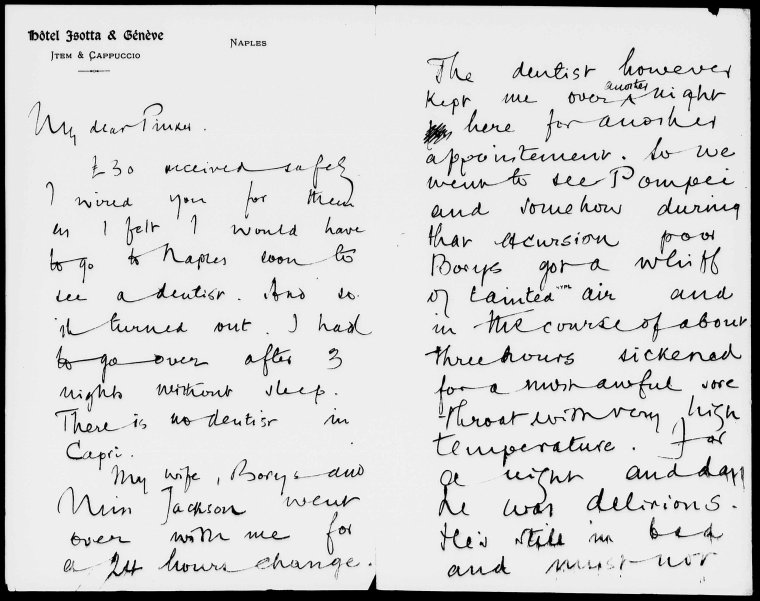 Hôtel Isotta & Génève
Item & Cappuccio
Naples
My dear Pinker.
£30 received safely
I wired you for them
as I felt I would have
to go to Naples soon to
see a dentist. And so
it turned out. I had
to go over after 3
nights without sleep.
There is no dentist in
Capri.
My wife, Borys and
Miss Jackson went
over with me for
a 24 hours change.
The dentist however
kept me over another night
here for another
appointement. So we
went to see Pompei
and somehow during
that excursion poor
Borys got a whiff
of tainted air and
in the course of about
three hours sickened
for a most awful sore
throat with very high
temperature. For
a night and day
he was delirious.
He's still in bed
and must not